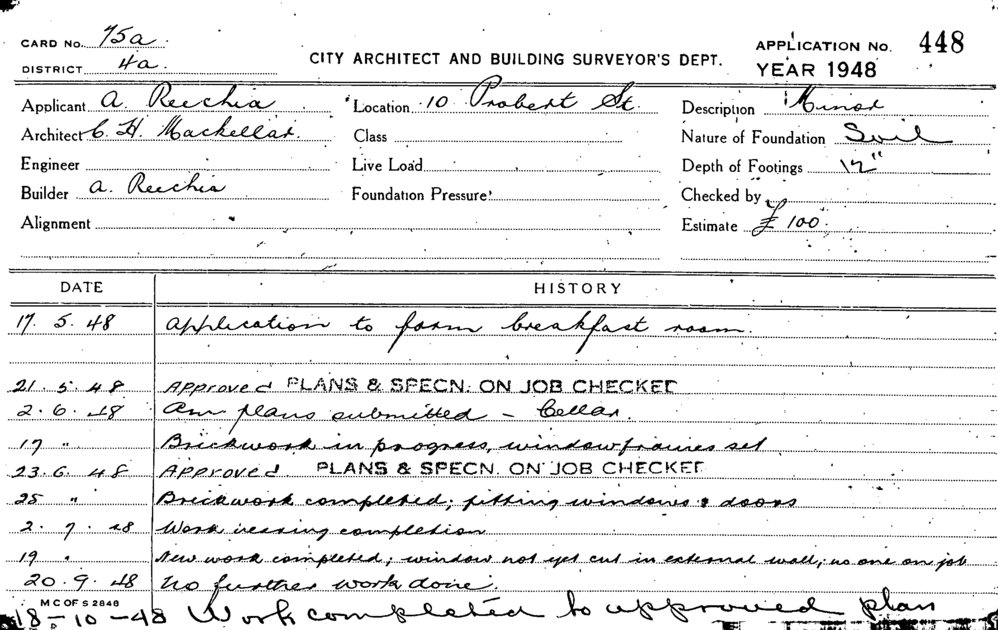 CARD No. 75a.
DISTRICT 4a.
CITY ARCHITECT AND BUILDING SURVEYOR'S DEPT.
APPLICATION No. 448
YEAR 1948
Applicant A. Recchia
Location 10 Probert St.
Description Minor
Architect C. H. Mackellar.
Class
Nature of Foundation Soil
Engineer
Live Load
Depth of Footings 12"
Builder A. Recchia
Foundation Pressure
Checked by
Alignment
Estimate £100.
DATE HISTORY
17. 5. 48 Application to form breakfast room.
21. 5. 48 Approved PLANS & SPECN. ON JOB CHECKED
2. 6. 48 Am plans submitted - Cellar.
17 " Brickwork in progress, window frames set
23. 6. 48 Approved PLANS & SPECN. ON JOB CHECKED
25 " Brickwork completed; fitting windows & doors
2. 7. 48 Work nearing completion
19 " New work completed; window not yet cut in external wall; no one on job
20. 9. 48 No further work done.
M C OF S 2846
18-10-48 Work completed to approved plan